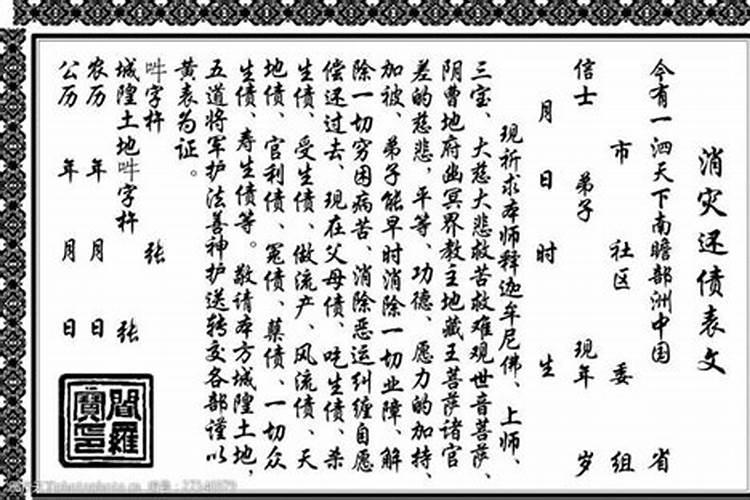 消灾还债表文
今有一泗天下南瞻部洲中国 省
市 社区 委 组
信士 弟子 现年 岁
月 日 时 生
现祈求本师释迦牟尼佛、上师、
三宝、大慈大悲救苦救难观世音菩萨、
阴曹地府幽冥界教主地藏王菩萨诸官
差的慈悲，平等、功德、愿力的加持、
加被、弟子能早时消除一切业障、解
除一切穷困病苦、消除恶运纠缠自愿
偿还过去、现在父母债、吃生债、杀
生债、受生债、做流产、风流债、天
地债、官利债、冤债、葉债、一切众
生债、寿生债等。敬请本方城隍土地，
五道将军护法善神护送转交各部谨以
黄表为证。
吽字杵 张
城隍土地吽字杵 张
农历 年 月 日
公历 年 月 日
閻羅寶印